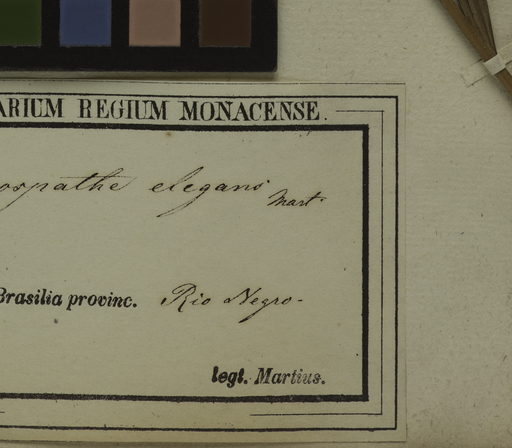 ARIUM REGIUM MONACENSE.
ospathe elegans Mart.
Brasilia provinc. Rio Negro.
legt. Martius.